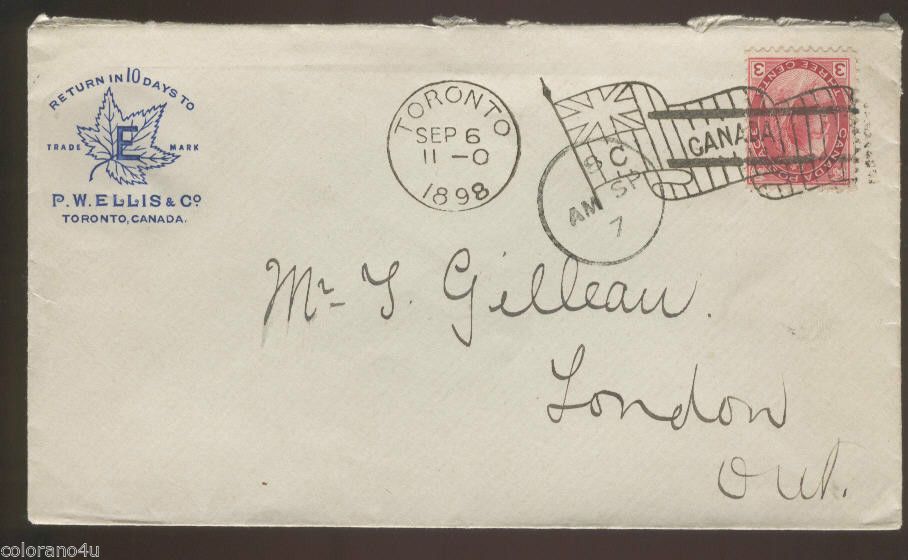 RETURN IN 10 DAYS TO
TRADE E MARK
P. W. ELLIS & Co
TORONTO, CANADA.
TORONTO
SEP 6
11-0
1898
CANADA
3 THREE CENTS 3
CANADA POSTAGE
8 C
AM SP
7
Mr- T. Gilleau.
London
Ont.
colorano4u